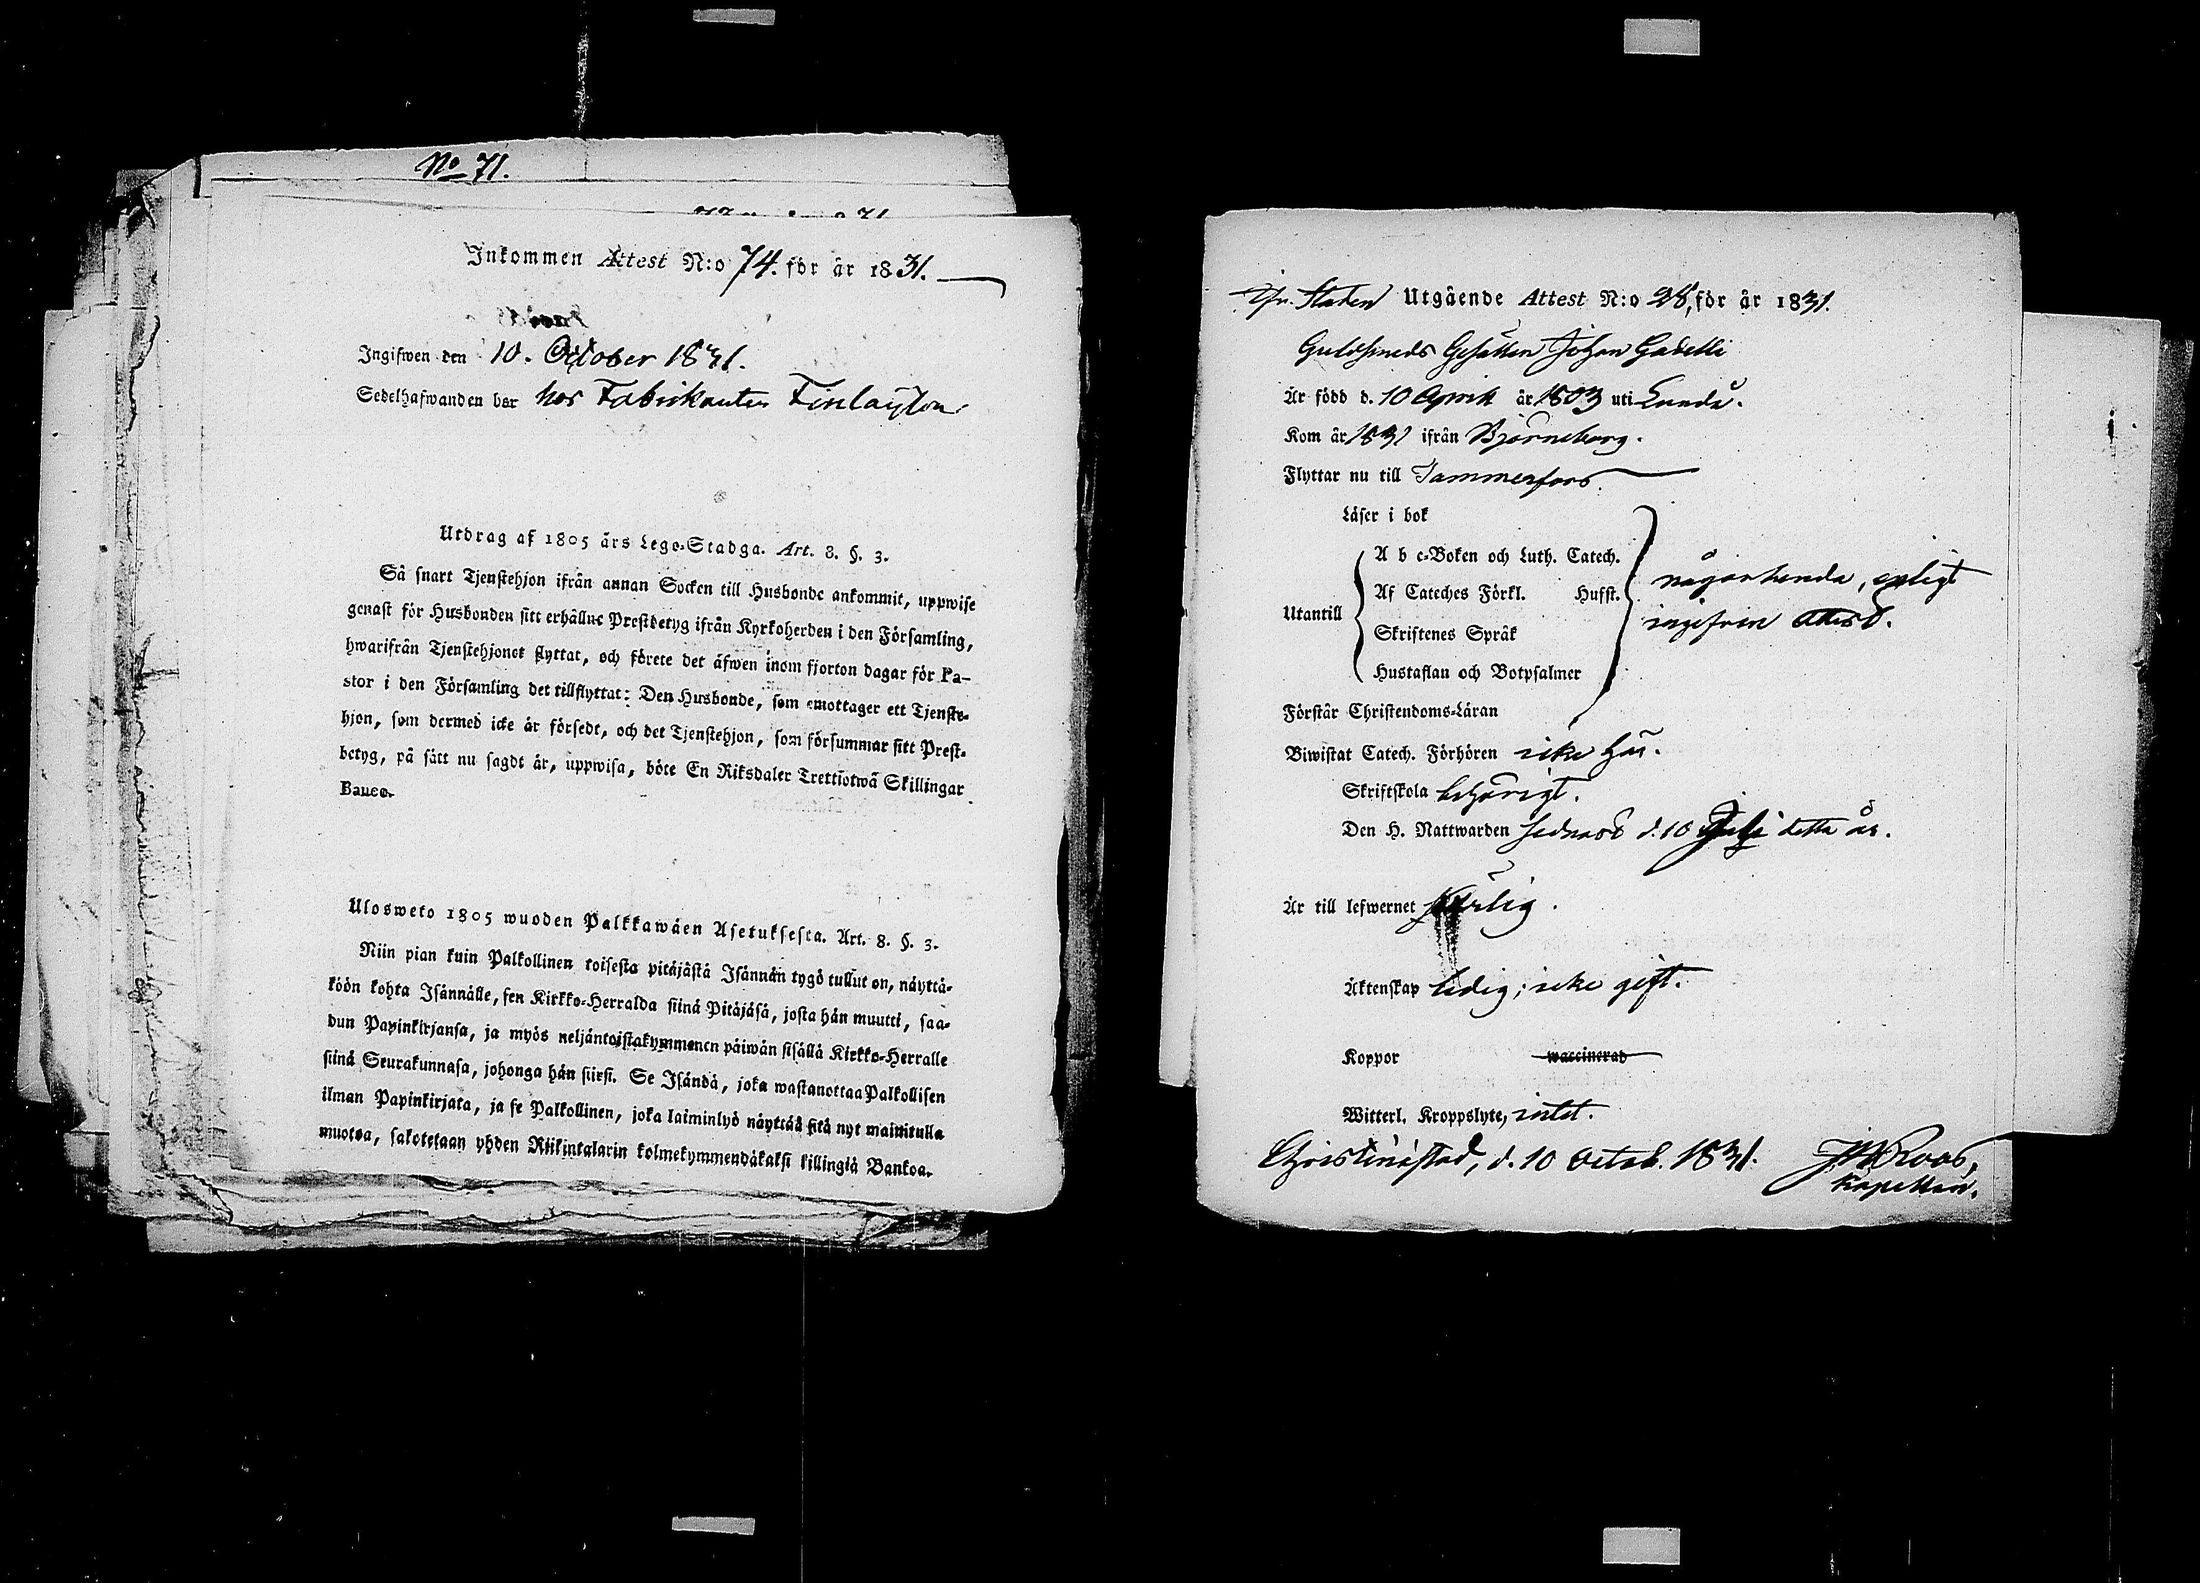 No 71.
Inkommen Attest N:o 74. för år 1831.
Ingifwen den 10. October 1831.
Sedelhafwanden bor hos Fabrikanten Finlayson
Utdrag af 1805 års Lego-Stadga. Art. 8. §. 3.
Så snart Tjenstehjon ifrån annan Socken till Husbonde ankommit, uppwise
genast för Husbonden sitt erhållne Prestbetyg ifrån Kyrkoherden i den Församling,
hwarifrån Tjenstehjonet flyttat, och förete det äfwen inom fjorton dagar för Pa-
stor i den Församling det tillflyttat: Den Husbonde, som emottager ett Tjenste-
hjon, som dermed icke är försedt, och det Tjenstehjon, som försummar sitt Prest-
betyg, på sätt nu sagdt är, uppwisa, böte En Riksdaler Trettiotwå Skillingar
Banco.
Ulosweto 1805 wuoden Palkkawäen Asetuksesta. Art. 8. §. 3.
Niin pian kuin Palkollinen toisesta pitäjästä Isännän tygö tullut on, näyttä-
köön kohta Isännälle, sen Kirkko-Herralda siinä Pitäjäsä, josta hän muutti, saa-
dun Papinkirjansa, ja myös neljäntoistakymmenen päiwän sisällä Kirkko-Herralle
siinä Seurakunnasa, johonga hän siirsi. Se Isändä, joka wastanottaa Palkollisen
ilman Papinkirjata, ja se Palkollinen, joka laiminlyö näyttää sitä nyt mainitulla
muotoa, sakotetaan yhden Riikintalarin kolmekymmendäkaksi killingiä Bankoa.
Ifr. Staden Utgående Attest N:o 28, för år 1831.
Guldsmeds Gesällen Johan Gadelli
Är född d. 10 April år 1803 uti Lundo.
Kom år 1831 ifrån Björneborg.
Flyttar nu till Tammerfors
Läser i bok
A b c-Boken och Luth. Catech.
Af Cateches Förkl. Husst.
Utantill
Skriftenes Språk
Hustaflan och Botpsalmer
någorlunda, enligt
ingifven attest.
Förstår Christendoms-Läran
Biwistat Catech. Förhören icke här.
Skriftskola behörigt.
Den H. Nattwarden sednast d. 10 Julii detta år.
Är till lefwernet ärlig.
Äktenskap ledig; icke gift.
Koppor waccinerad
Witterl. Kroppslyte, intet.
Christinæstad, d. 10 Octob. 1831.
Roos,
Kapellan.